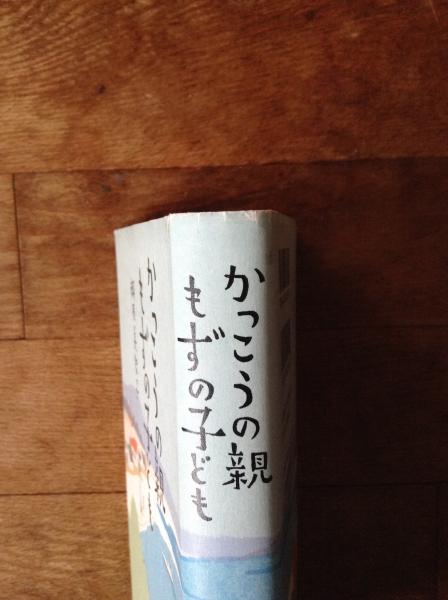 かっこうの親
もずの子ども
かっこうの親
もずの子ども